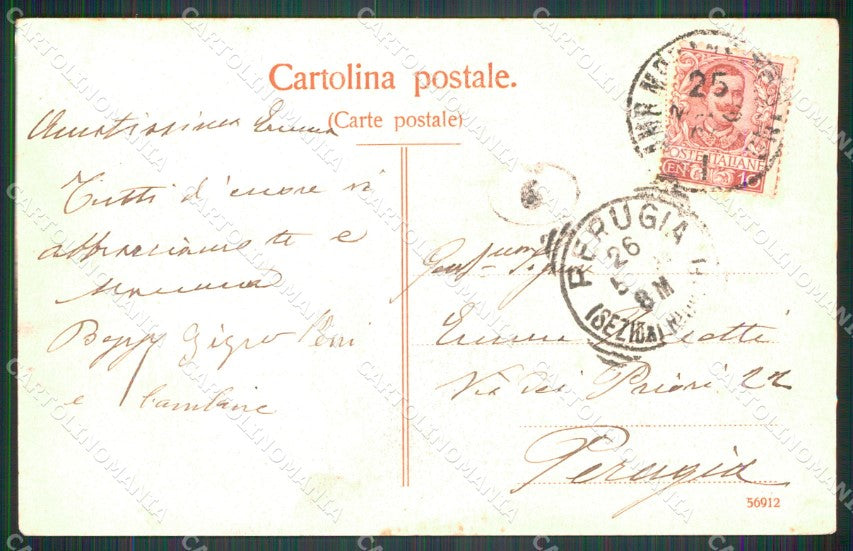 Cartolina postale.
(Carte postale)
Amatissima Emma
Tutti di cuore vi
abbracciamo te e
Beppe Gigio Peni
e bambine
25
POSTE ITALIANE
CEN 10
1
PERUGIA
26
8 M
Emma
Via dei Priori 22
Perugia
56912
CARTOLINOMANIA